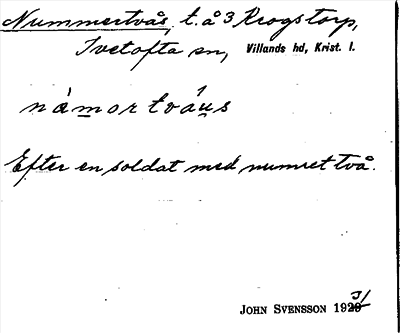 Nummertvås, t. å 3 Krogstorp,
Ivetofta sn, Villands hd, Krist. l.
námortváus
Efter en soldat med numret två.
JOHN SVENSSON 1931